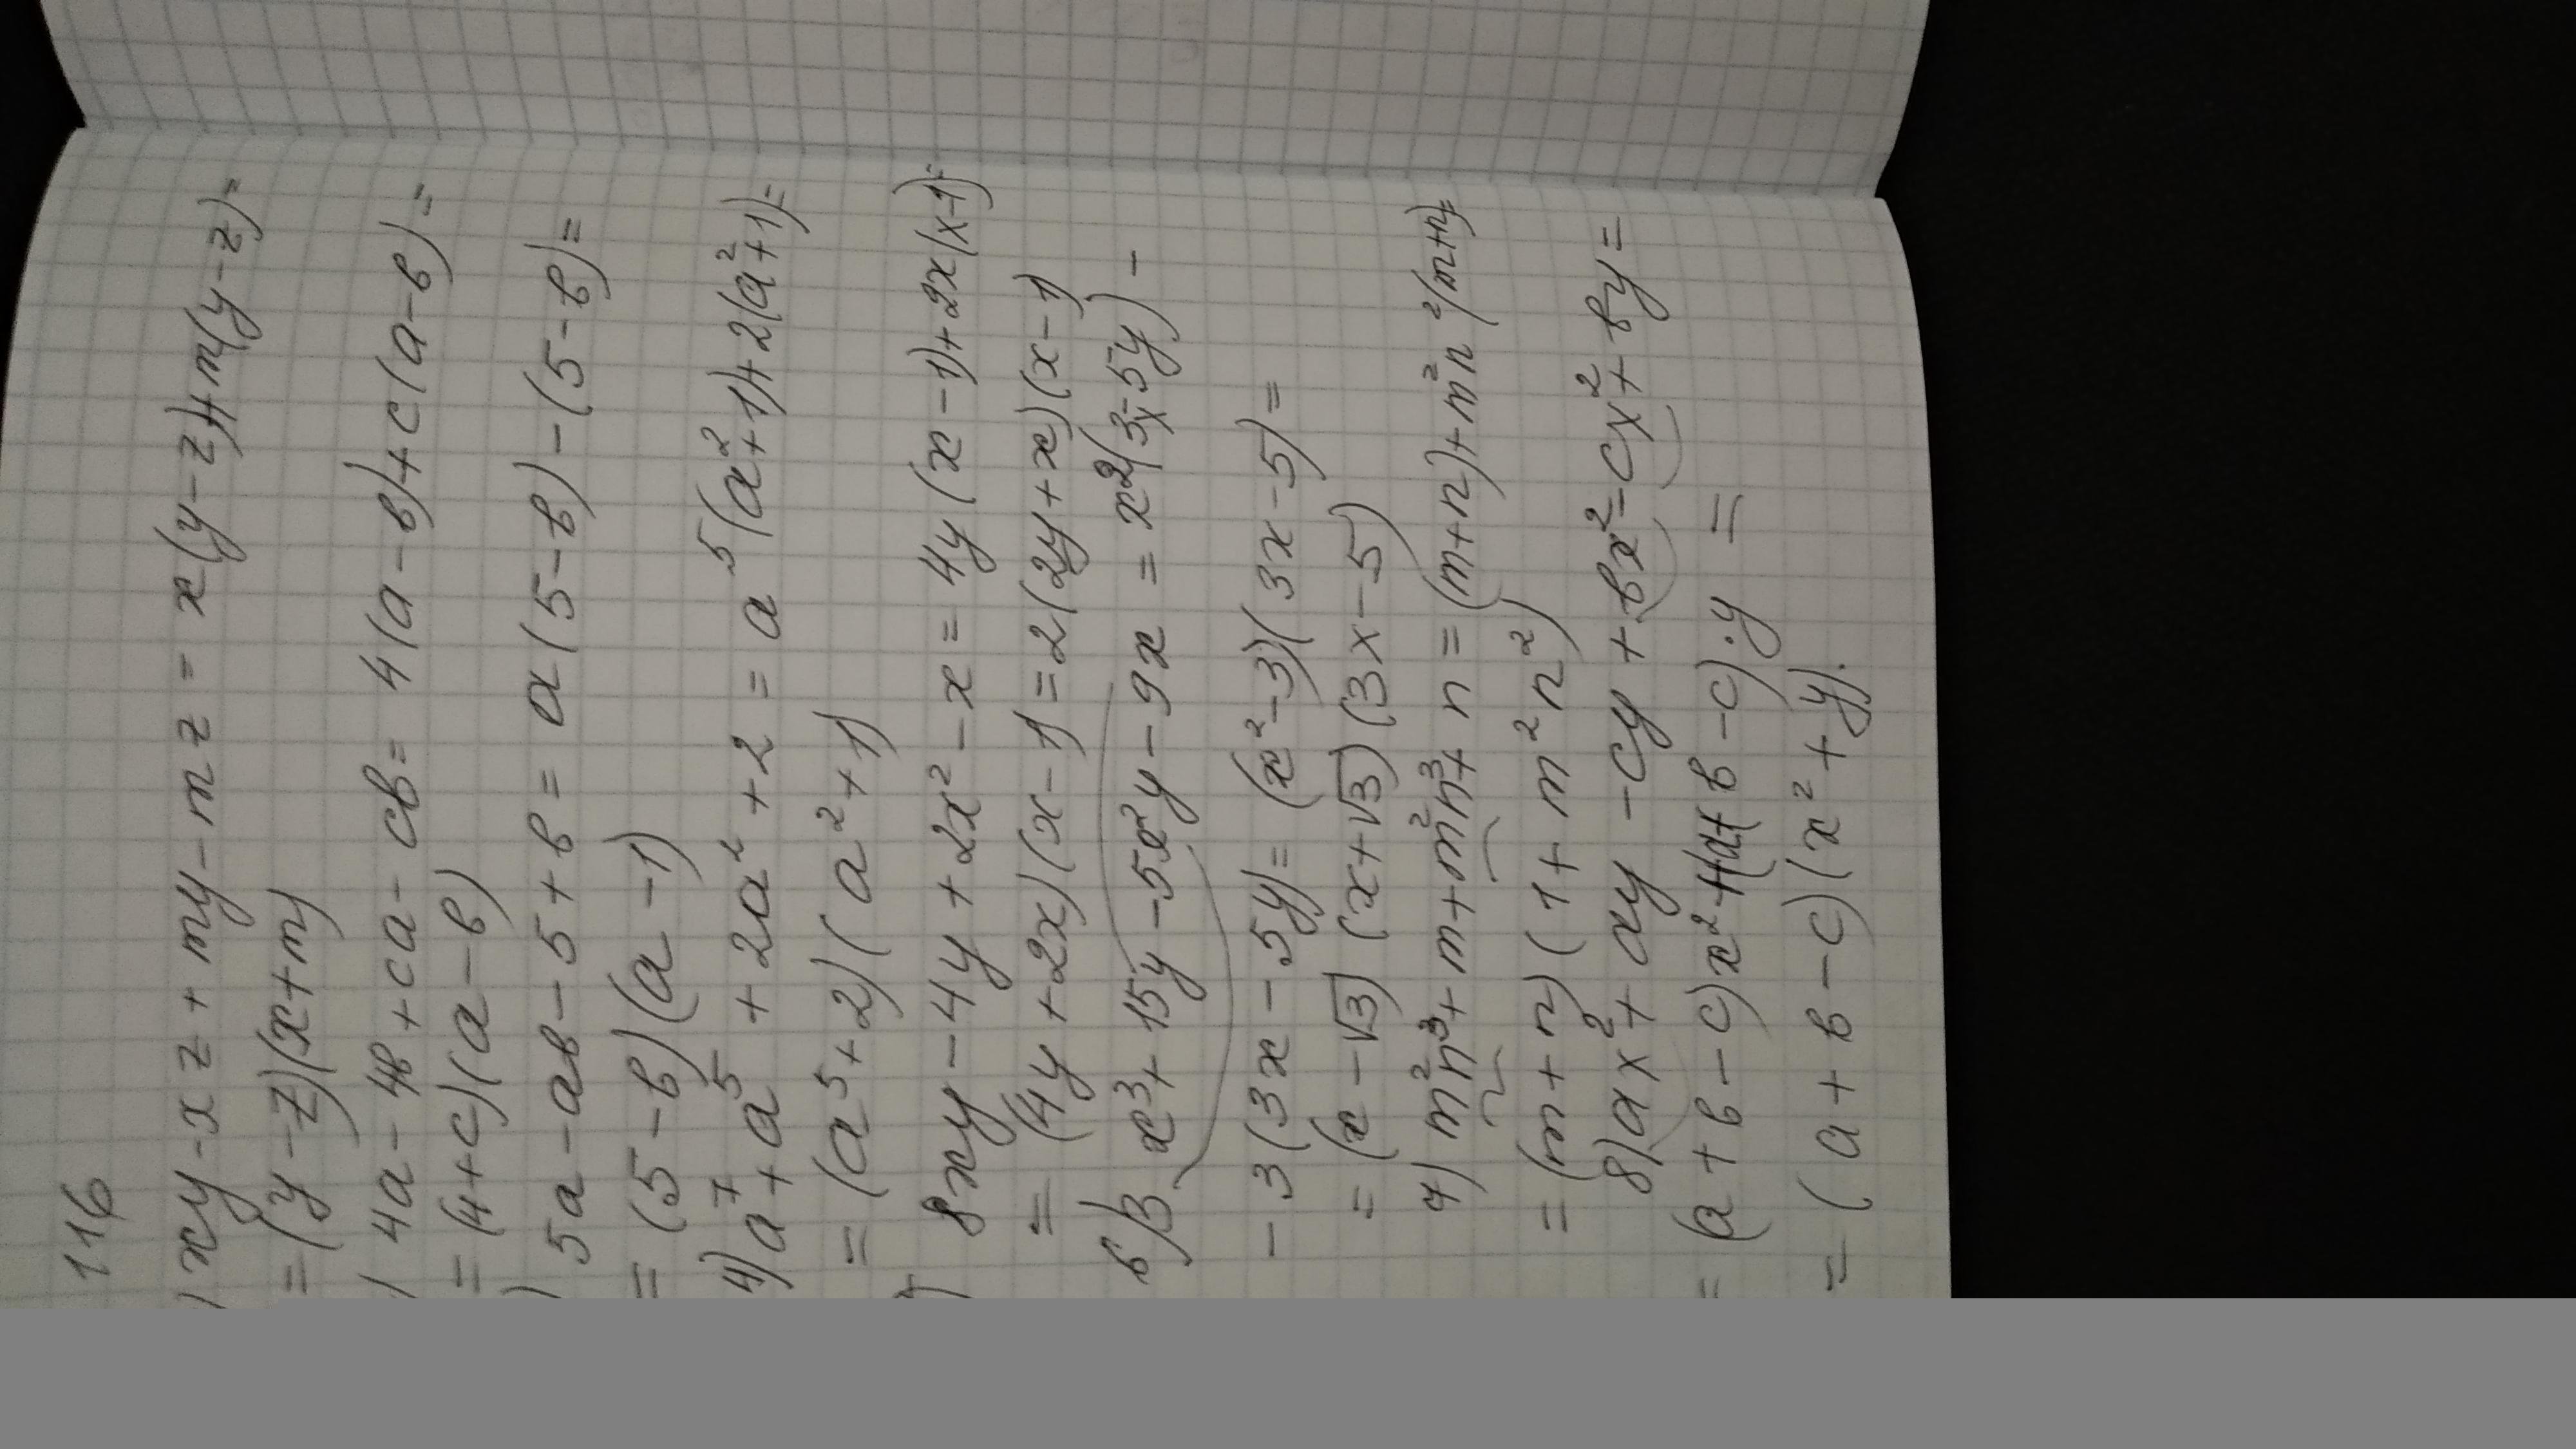 116
) xy - xz + my - mz = x(y-z)+m(y-z)=
= (y-z)(x+m)
) 4a - 4в + ca - cв = 4(a-в)+c(a-в)=
= (4+c)(a-в)
) 5a - aв - 5 + в = a(5-в)-(5-в)=
= (5-в)(a-1)
4) a⁷ + a⁵ + 2a² + 2 = a⁵(a²+1)+2(a²+1)=
= (a⁵+2)(a²+1)
) 8xy - 4y + 2x² - x = 4y(x-1)+2x(x-1)=
= (4y+2x)(x-1) = 2(2y+x)(x-1)
6) 3x³ + 15y - 5x²y - 9x = x²(3x-5y) -
- 3(3x-5y) = (x²-3)(3x-5) =
= (x-√3)(x+√3)(3x-5)
7) m²n³ + m + m²n³ + n = (m+n)+m²n²(m+n)=
= (m+n)(1+m²n²)
8) ax² + ay - cy + вx² - cx² + вy =
= (a+в-c)x² + (a+в-c)·y =
= (a+в-c)(x²+y).